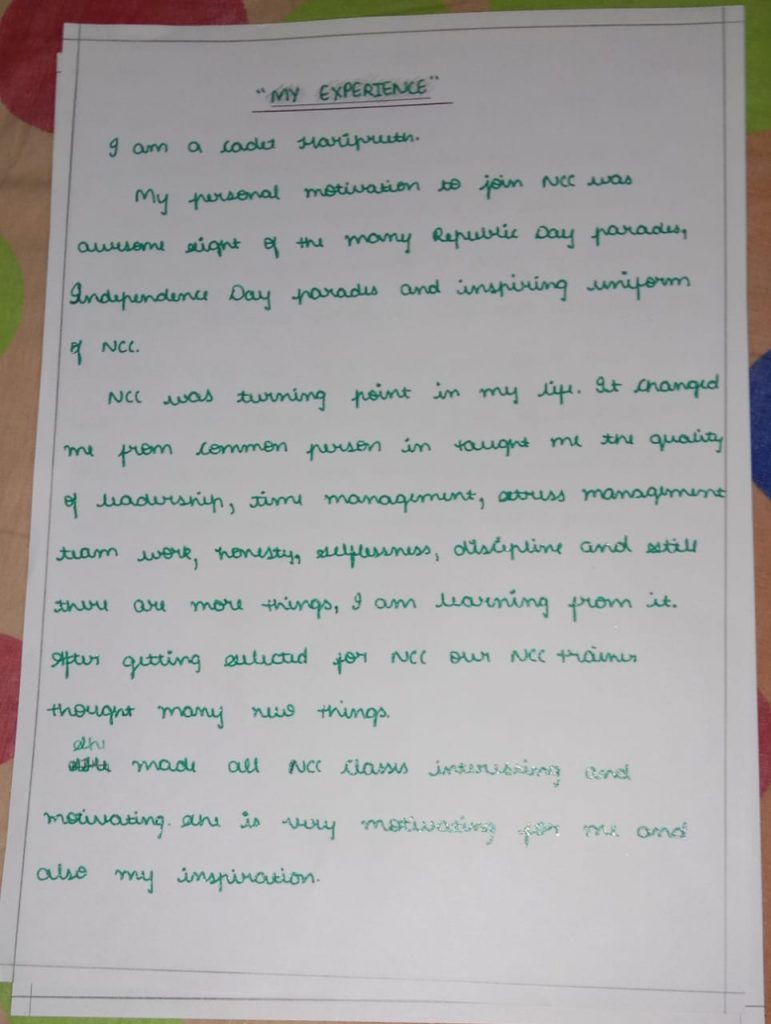 "MY EXPERIENCE"
I am a cadet Haripreeth.
My personal motivation to join NCC was
awesome sight of the many Republic Day parades,
Independence Day parades and inspiring uniform
of NCC.
NCC was turning point in my life. It changed
me from common person in taught me the quality
of leadership, time management, stress management
team work, honesty, selflessness, discipline and still
there are more things, I am learning from it.
After getting selected for NCC our NCC trainer
thought many new things.
she
made all NCC classes interessing and
motivating. she is very motivating for me and
also my inspiration.